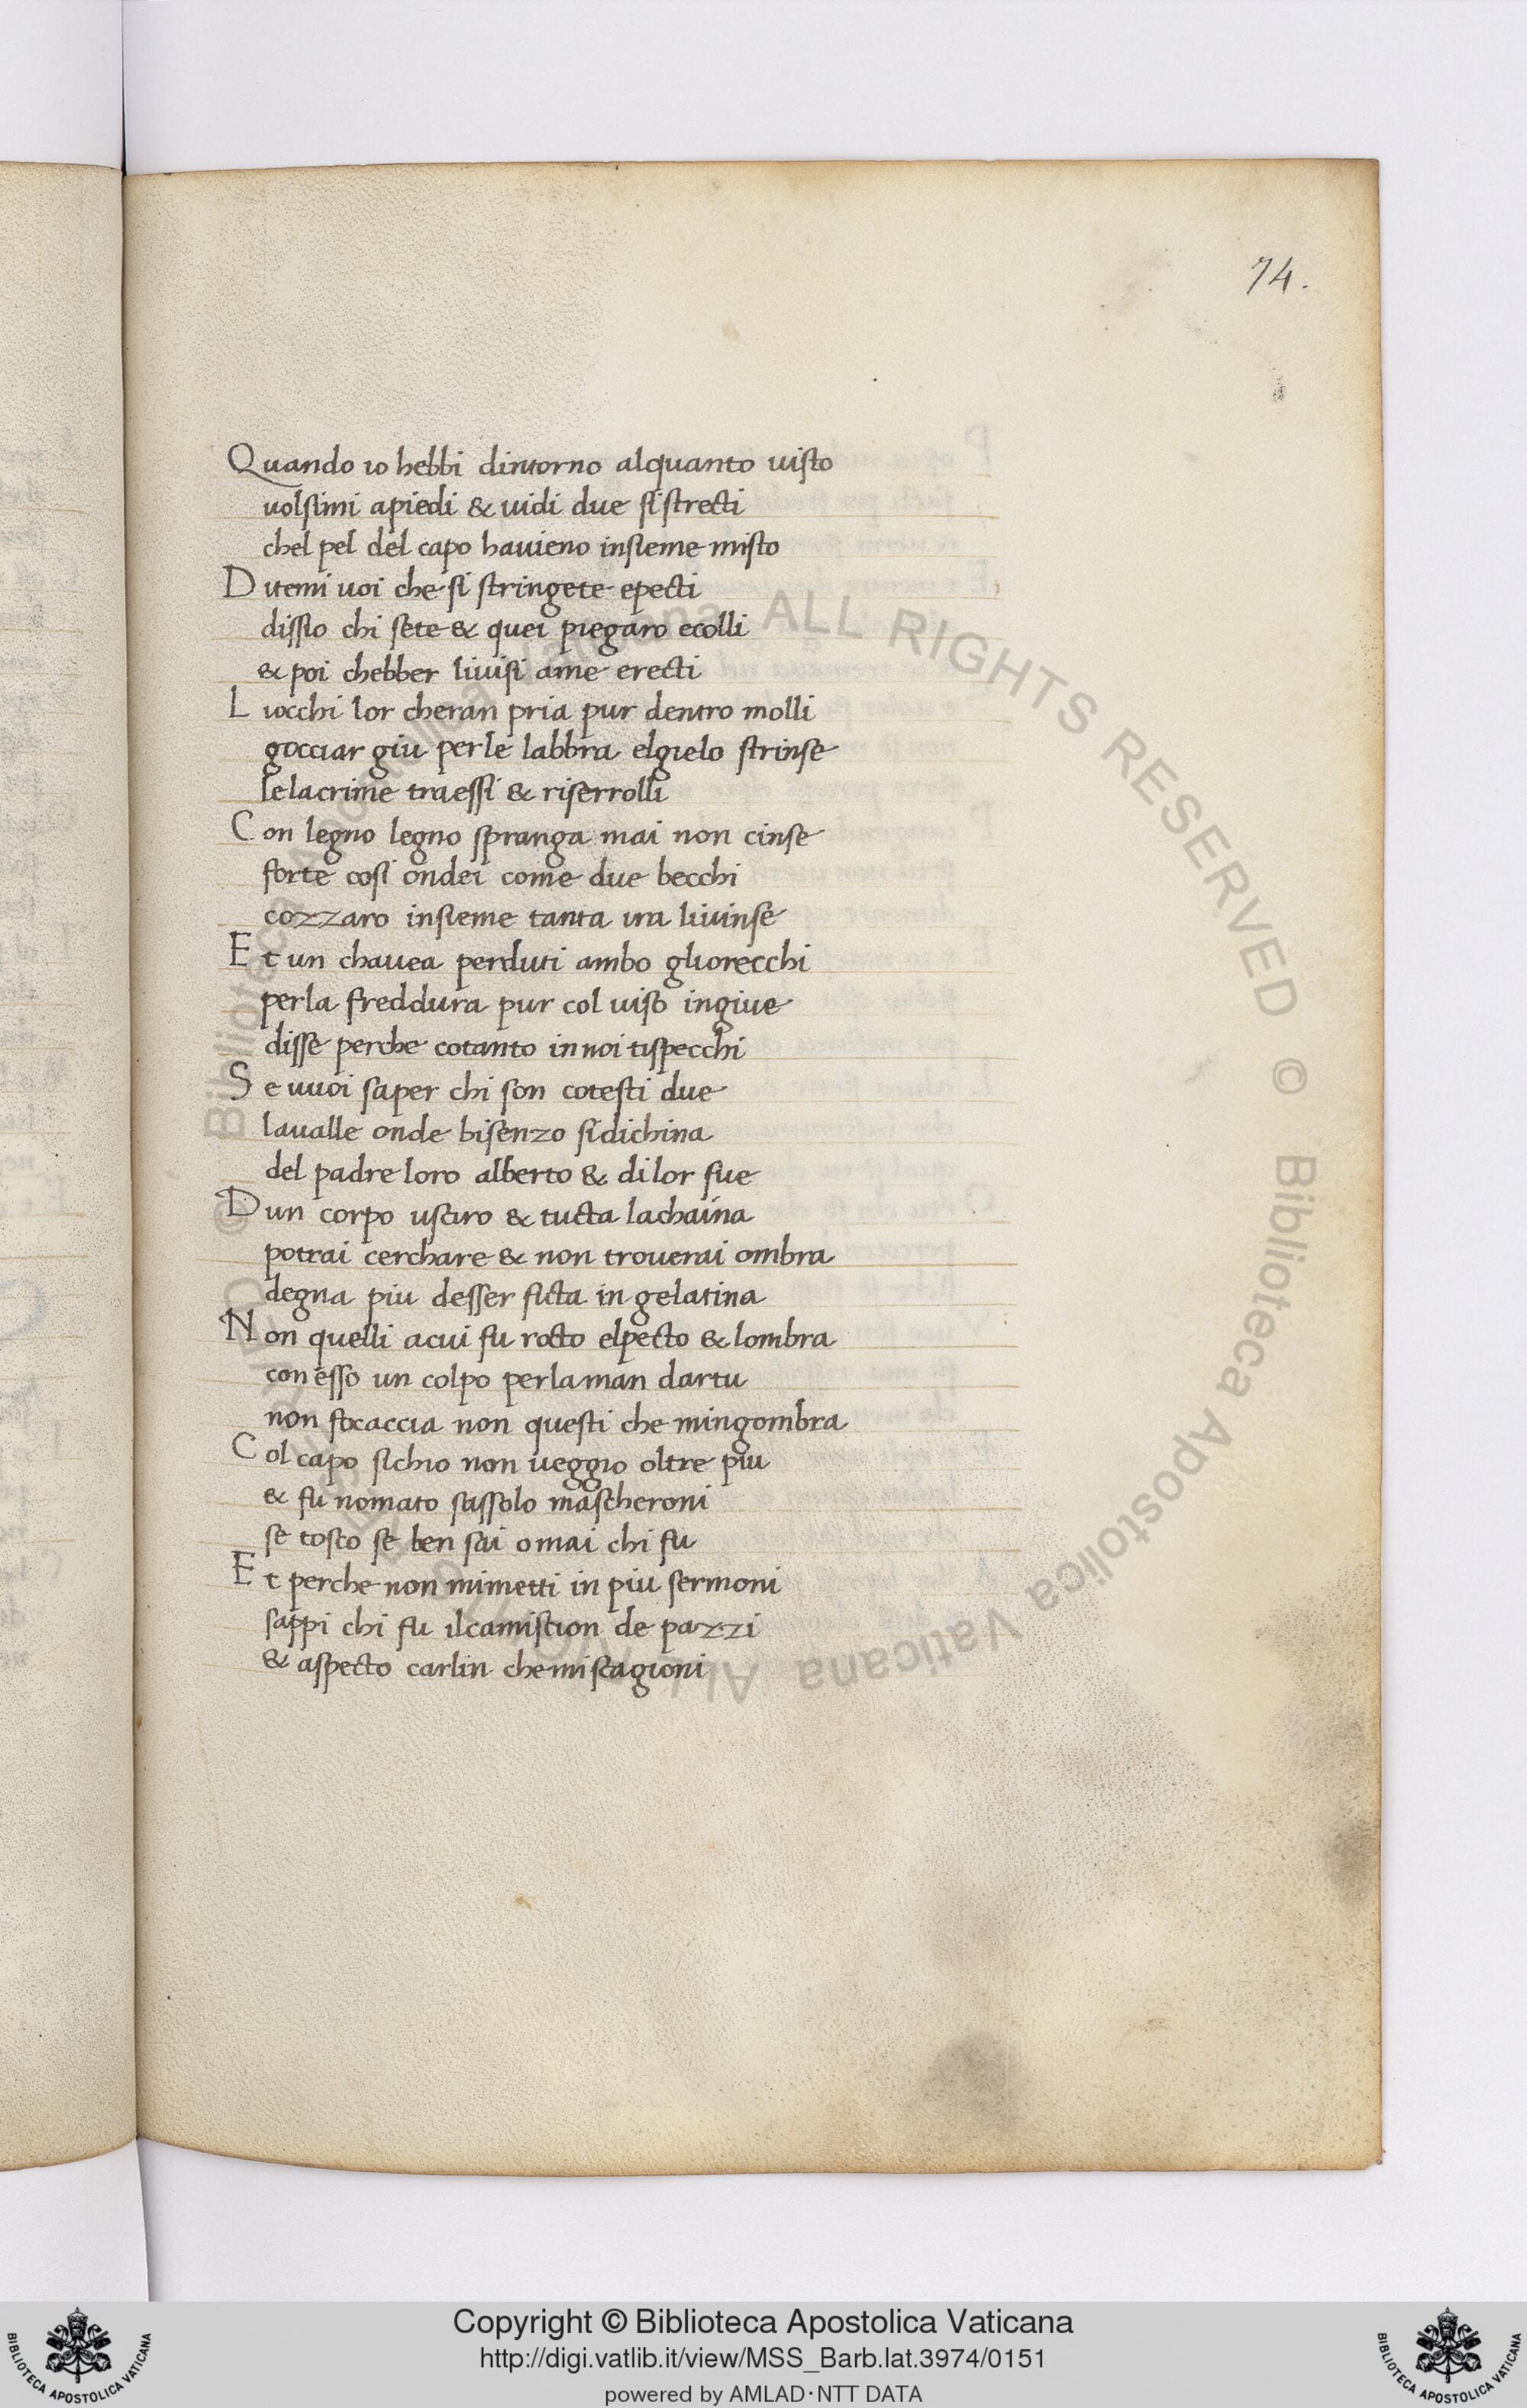 74.
Quando io hebbi dintorno alquanto uisto
uolsimi apiedi & uidi due sistrecti
chel pel del capo hauieno insieme misto
Ditemi uoi che si stringete epecti
dissio chi sete & quei piegaro ecolli
& poi chebber liuisi ame erecti
Liocchi lor cheran pria pur dentro molli
gocciar giu perle labbra elgielo strinse
lelacrime traessi & riserrolli
Con legno legno spranga mai non cinse
forte cosi ondei come due becchi
cozzaro insieme tanta ira liuinse
Et un chauea perduti ambo gliorecchi
perla freddura pur col uiso ingiue
disse perche cotanto in noi tispecchi
Se uuoi saper chi son cotesti due
laualle onde bisenzo sidichina
del padre loro alberto & dilor fue
Dun corpo usciro & tucta lachaina
potrai cerchare & non trouerai ombra
degna piu desser ficta in gelatina
Non quelli acui fu rocto elpecto & lombra
con esso un colpo perlaman dartu
non focaccia non questi che mingombra
Col capo sichio non ueggio oltre piu
& fu nomato sassolo mascheroni
se tosco se ben sai omai chi fu
Et perche non mimetti in piu sermoni
sappi chi fu ilcamiscion de pazzi
& aspecto carlin chemiscagioni
© Biblioteca Apostolica Vaticana ALL RIGHTS RESERVED © Biblioteca Apostolica Vaticana ALL RIGHTS RESERVED
Copyright © Biblioteca Apostolica Vaticana
http://digi.vatlib.it/view/MSS_Barb.lat.3974/0151
powered by AMLAD·NTT DATA
BIBLIOTECA APOSTOLICA VATICANA
BIBLIOTECA APOSTOLICA VATICANA